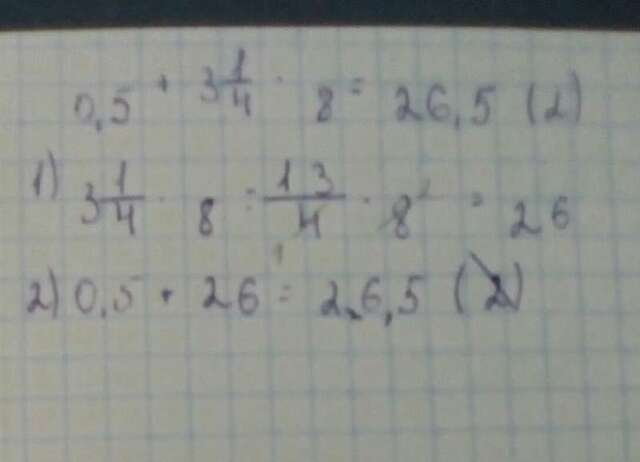 0,5 + 3 1/4 · 8 = 26,5 (2)
1) 3 1/4 · 8 = 13/4 · 8² = 26
2) 0,5 + 26 = 26,5